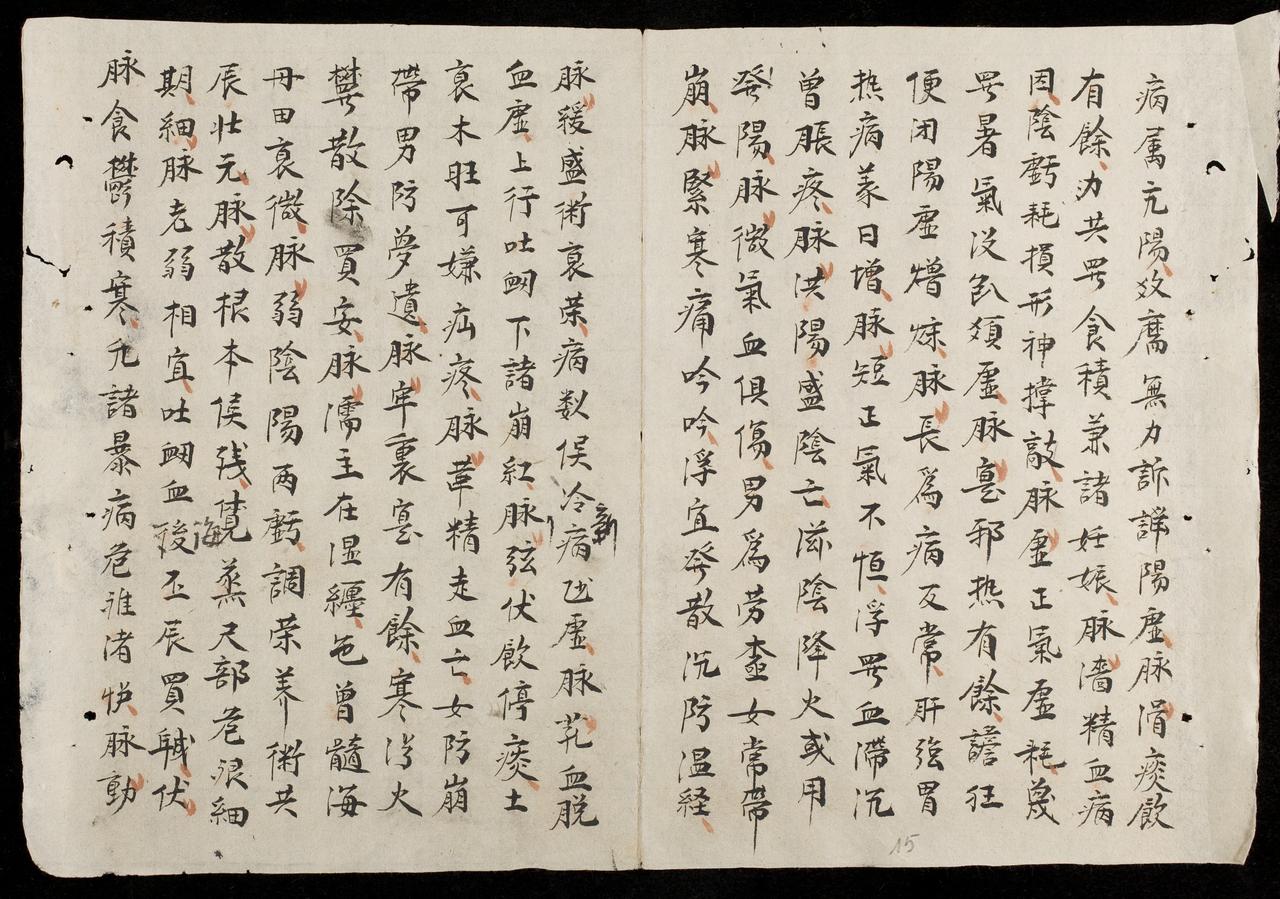 病属元陽效腐無力訴諱陽虚脉滑痰飲
有餘力共哭食積兼諸妊娠脉濇精血病
因陰虧耗損形神撑敲脉虚正氣虚耗蔑
哭暑氣没色須虚脉寔邪热有餘譫狂
便闭陽虚熷㶬脉長爲病反常肝強胃
热病蒙日增脉短正氣不恒浮哭血滯沉
曾脹疼脉洪陽盛陰亡滋陰降火或用
發陽脉微氣血俱傷男爲劳蠢女常帶
崩脉緊寒痛吟吟浮宜發散沉防温経
脉緩盛術衰荣病数侯冷病虚脉芤血脱
新
血虚上行吐衂下諸崩紅脉弦伏飲停痰土
衰木旺可嫌疝疼脉革精走血亡女防崩
帶男防夢遺脉牢裏寔有餘寒火
散除買妄脉濡主在湿纏色曾髓海
毋田衰微脉弱陰陽两虧調荣养術共
辰壮元脉散根本侯残覺蒸尺部苍狠細
海
期細脉老弱相宜吐衂血後丕辰買伏
脉食鬱積寒凡諸暴病危准渚快脉動
15